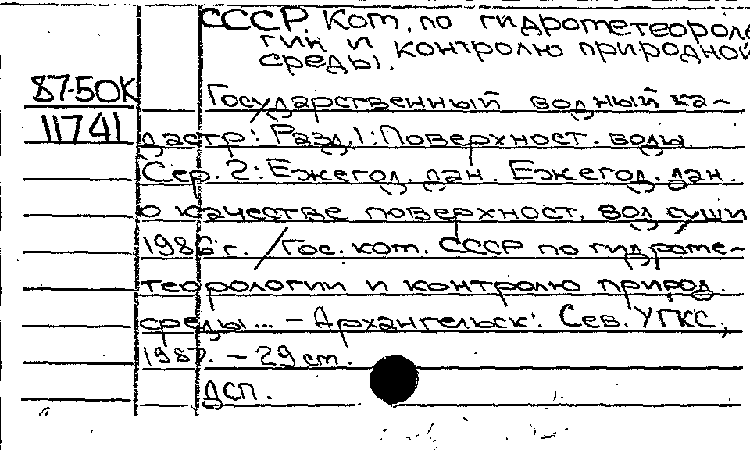 СССР. Ком. по гидрометеороло
гии и контролю природной
среды.
87-50К
Государственный водный ка-
11741
дастр: Разд. 1: Поверхност. воды.
Сер. 2: Ежегод. дан. Ежегод. дан.
о качестве поверхност. вод суши
1986 г. / Гос. ком. СССР по гидроме-
теорологии и контролю природ.
среды... – Архангельск: Сев. УГКС,
1987. – 29 см.
ДСП.